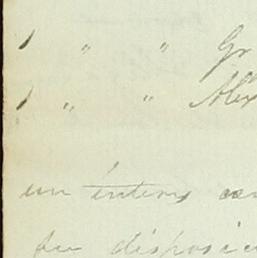 1 " " Gr
1 " " Alex
un interes
fu disposic